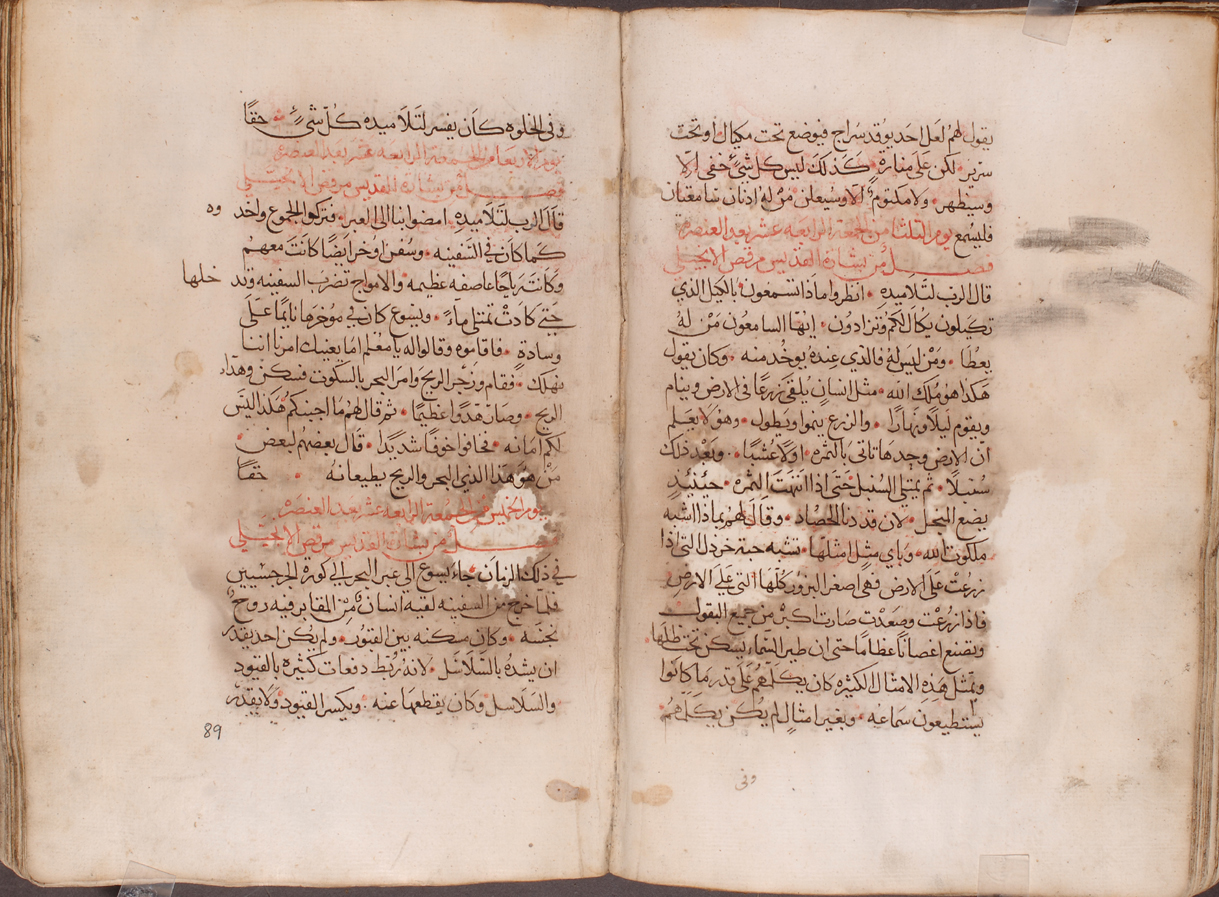 يقول لهم لعل احد يوقد سراج فيوضع تحت مكيال اوتحت
سرير لكن على مناره كذلك ليس كل شيء خفى الا
وسيظهر ولا مكتوم الا وسيعلن من له اذنان سامعتان
فليسمع يوم الثلثا من الجمعة الرابعه عشر بعد العنصره
فصل من بشارة القديس مرقص الانجيلى
قال الرب لتلاميده انظروا ماذا تسمعون بالكيل الذي
تكيلون يكال لكم وتزادون ايها السامعون من له
يعطا ومن ليس له فالذي عنده يوخد منه وكان يقول
هكذا هو ملك الله مثل انسان يلقى زرعا فى الارض وينام
ويقوم ليلا ونهارا والزرع ينموا ويطول وهو لا يعلم
ان الارض وحدها تاتى بالثمره اولا عشبا وبعد ذلك
سنبلا ثم يمتلى السنبل حتى اذا انتهت الثمره حينئيد
يضع المنجل لان قد دنا الحصاد وقال لهم بماذا اشبه
ملكوت الله وباي مثل امثلها تشبه حبة خردل التى اذا
زرعت على الارض فهى اصغر البزور كلها التى على الارض
فاذا زرعت وصعدت صارت اكبر من جميع البقول
وتصنع اغصانا عظاما حتى ان طير السماء يسكن تحت ظلها
وبمثل هذه الامثال الكثيره كان يكلمهم على قدر ما كانوا
يستطيعون سماعه وبغير امثال لم يكن يكلمهم
وفى
وفى الخلوه كان يفسر لتلاميده كل شيء حقا
يوم الاربعا من الجمعة الرابعه عشر بعد العنصره
فصل من بشارة القديس مرقص الانجيلى
قال الرب لتلاميده امضوا بنا الى العبر فتركوا الجموع واخدوه
كما كان في السفينه وسفن اوخر ايضا كانت معهم
وكانت رياحا عاصفه عظيمه والامواج تضرب السفينه وتدخلها
حتى كادت تمتلى ماء ويسوع كان في موخرها نايما على
وسادة فاقاموه وقالوا له يا معلم اما يعنيك امرنا اننا
نهلك فقام وزجر الريح وامر البحر بالسكوت فسكن وهداء
الريح وصار هدوا عظيما ثم قال لهم ما اجبنكم هكذا اليس
لكم امانه فخافوا خوفا شديدا قال بعضهم لبعض
من هو هذا الذي البحر والريح يطيعانه حقا
يوم الخميس من الجمعة الرابعه عشر بعد العنصره
فصل من بشارة القديس مرقص الانجيلى
في ذلك الزمان جاء يسوع الى عبر البحر الى كورة الجرجسيين
فلما خرج من السفينه لقيه انسان من المقابر فيه روح
نجسه وكان مسكنه بين القبور ولم يكن احد يقدر
ان يشده بالسلاسل لانه ربط دفعات كثيره بالقيود
والسلاسل وكان يقطعها عنه ويكسر القيود ولا يقدر
89